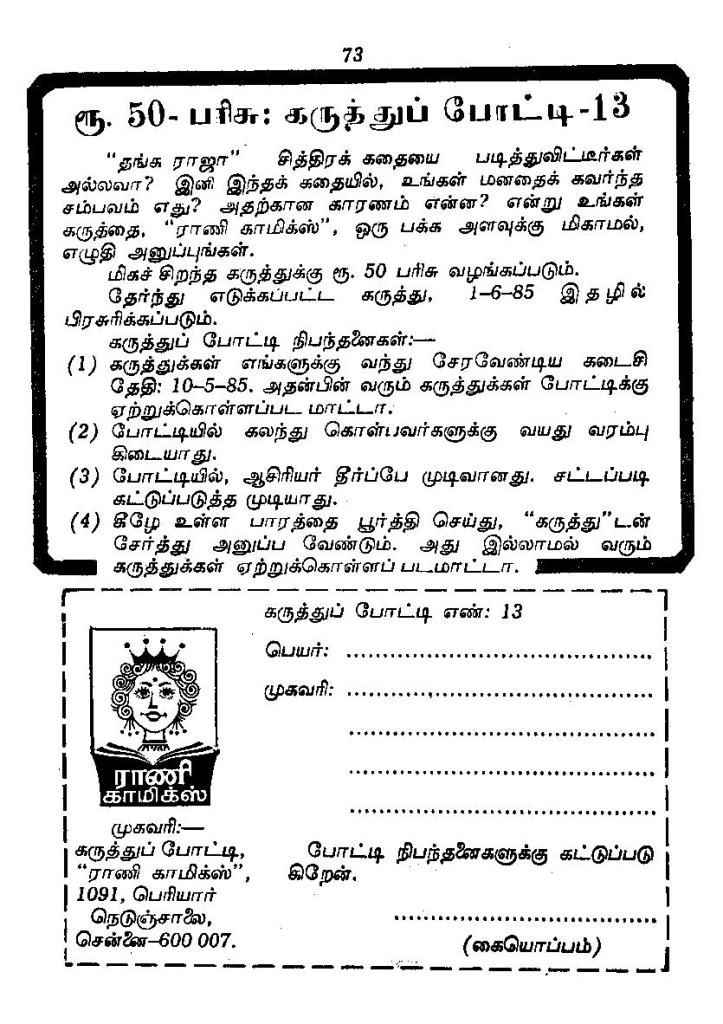 73
ரூ. 50- பரிசு: கருத்துப் போட்டி -13
“தங்க ராஜா” சித்திரக் கதையை படித்துவிட்டீர்கள்
அல்லவா? இனி இந்தக் கதையில், உங்கள் மனதைக் கவர்ந்த
சம்பவம் எது? அதற்கான காரணம் என்ன? என்று உங்கள்
கருத்தை, “ராணி காமிக்ஸ்”, ஒரு பக்க அளவுக்கு மிகாமல்,
எழுதி அனுப்புங்கள்.
மிகச் சிறந்த கருத்துக்கு ரூ. 50 பரிசு வழங்கப்படும்.
தேர்ந்து எடுக்கப்பட்ட கருத்து, 1-6-85 இதழில்
பிரசுரிக்கப்படும்.
கருத்துப் போட்டி நிபந்தனைகள்:—
(1) கருத்துக்கள் எங்களுக்கு வந்து சேரவேண்டிய கடைசி
தேதி: 10-5-85. அதன்பின் வரும் கருத்துக்கள் போட்டிக்கு
ஏற்றுக்கொள்ளப்பட மாட்டா.
(2) போட்டியில் கலந்து கொள்பவர்களுக்கு வயது வரம்பு
கிடையாது.
(3) போட்டியில், ஆசிரியர் தீர்ப்பே முடிவானது. சட்டப்படி
கட்டுப்படுத்த முடியாது.
(4) கீழே உள்ள பாரத்தை பூர்த்தி செய்து, “கருத்து”டன்
சேர்த்து அனுப்ப வேண்டும். அது இல்லாமல் வரும்
கருத்துக்கள் ஏற்றுக்கொள்ளப் படமாட்டா.
கருத்துப் போட்டி எண்: 13
பெயர்: ........................................
முகவரி: ........................................
........................................
........................................
........................................
ராணி
காமிக்ஸ்
முகவரி:—
கருத்துப் போட்டி,
“ராணி காமிக்ஸ்”,
1091, பெரியார்
நெடுஞ்சாலை,
சென்னை-600 007.
போட்டி நிபந்தனைகளுக்கு கட்டுப்படு
கிறேன்.
........................................
(கையொப்பம்)